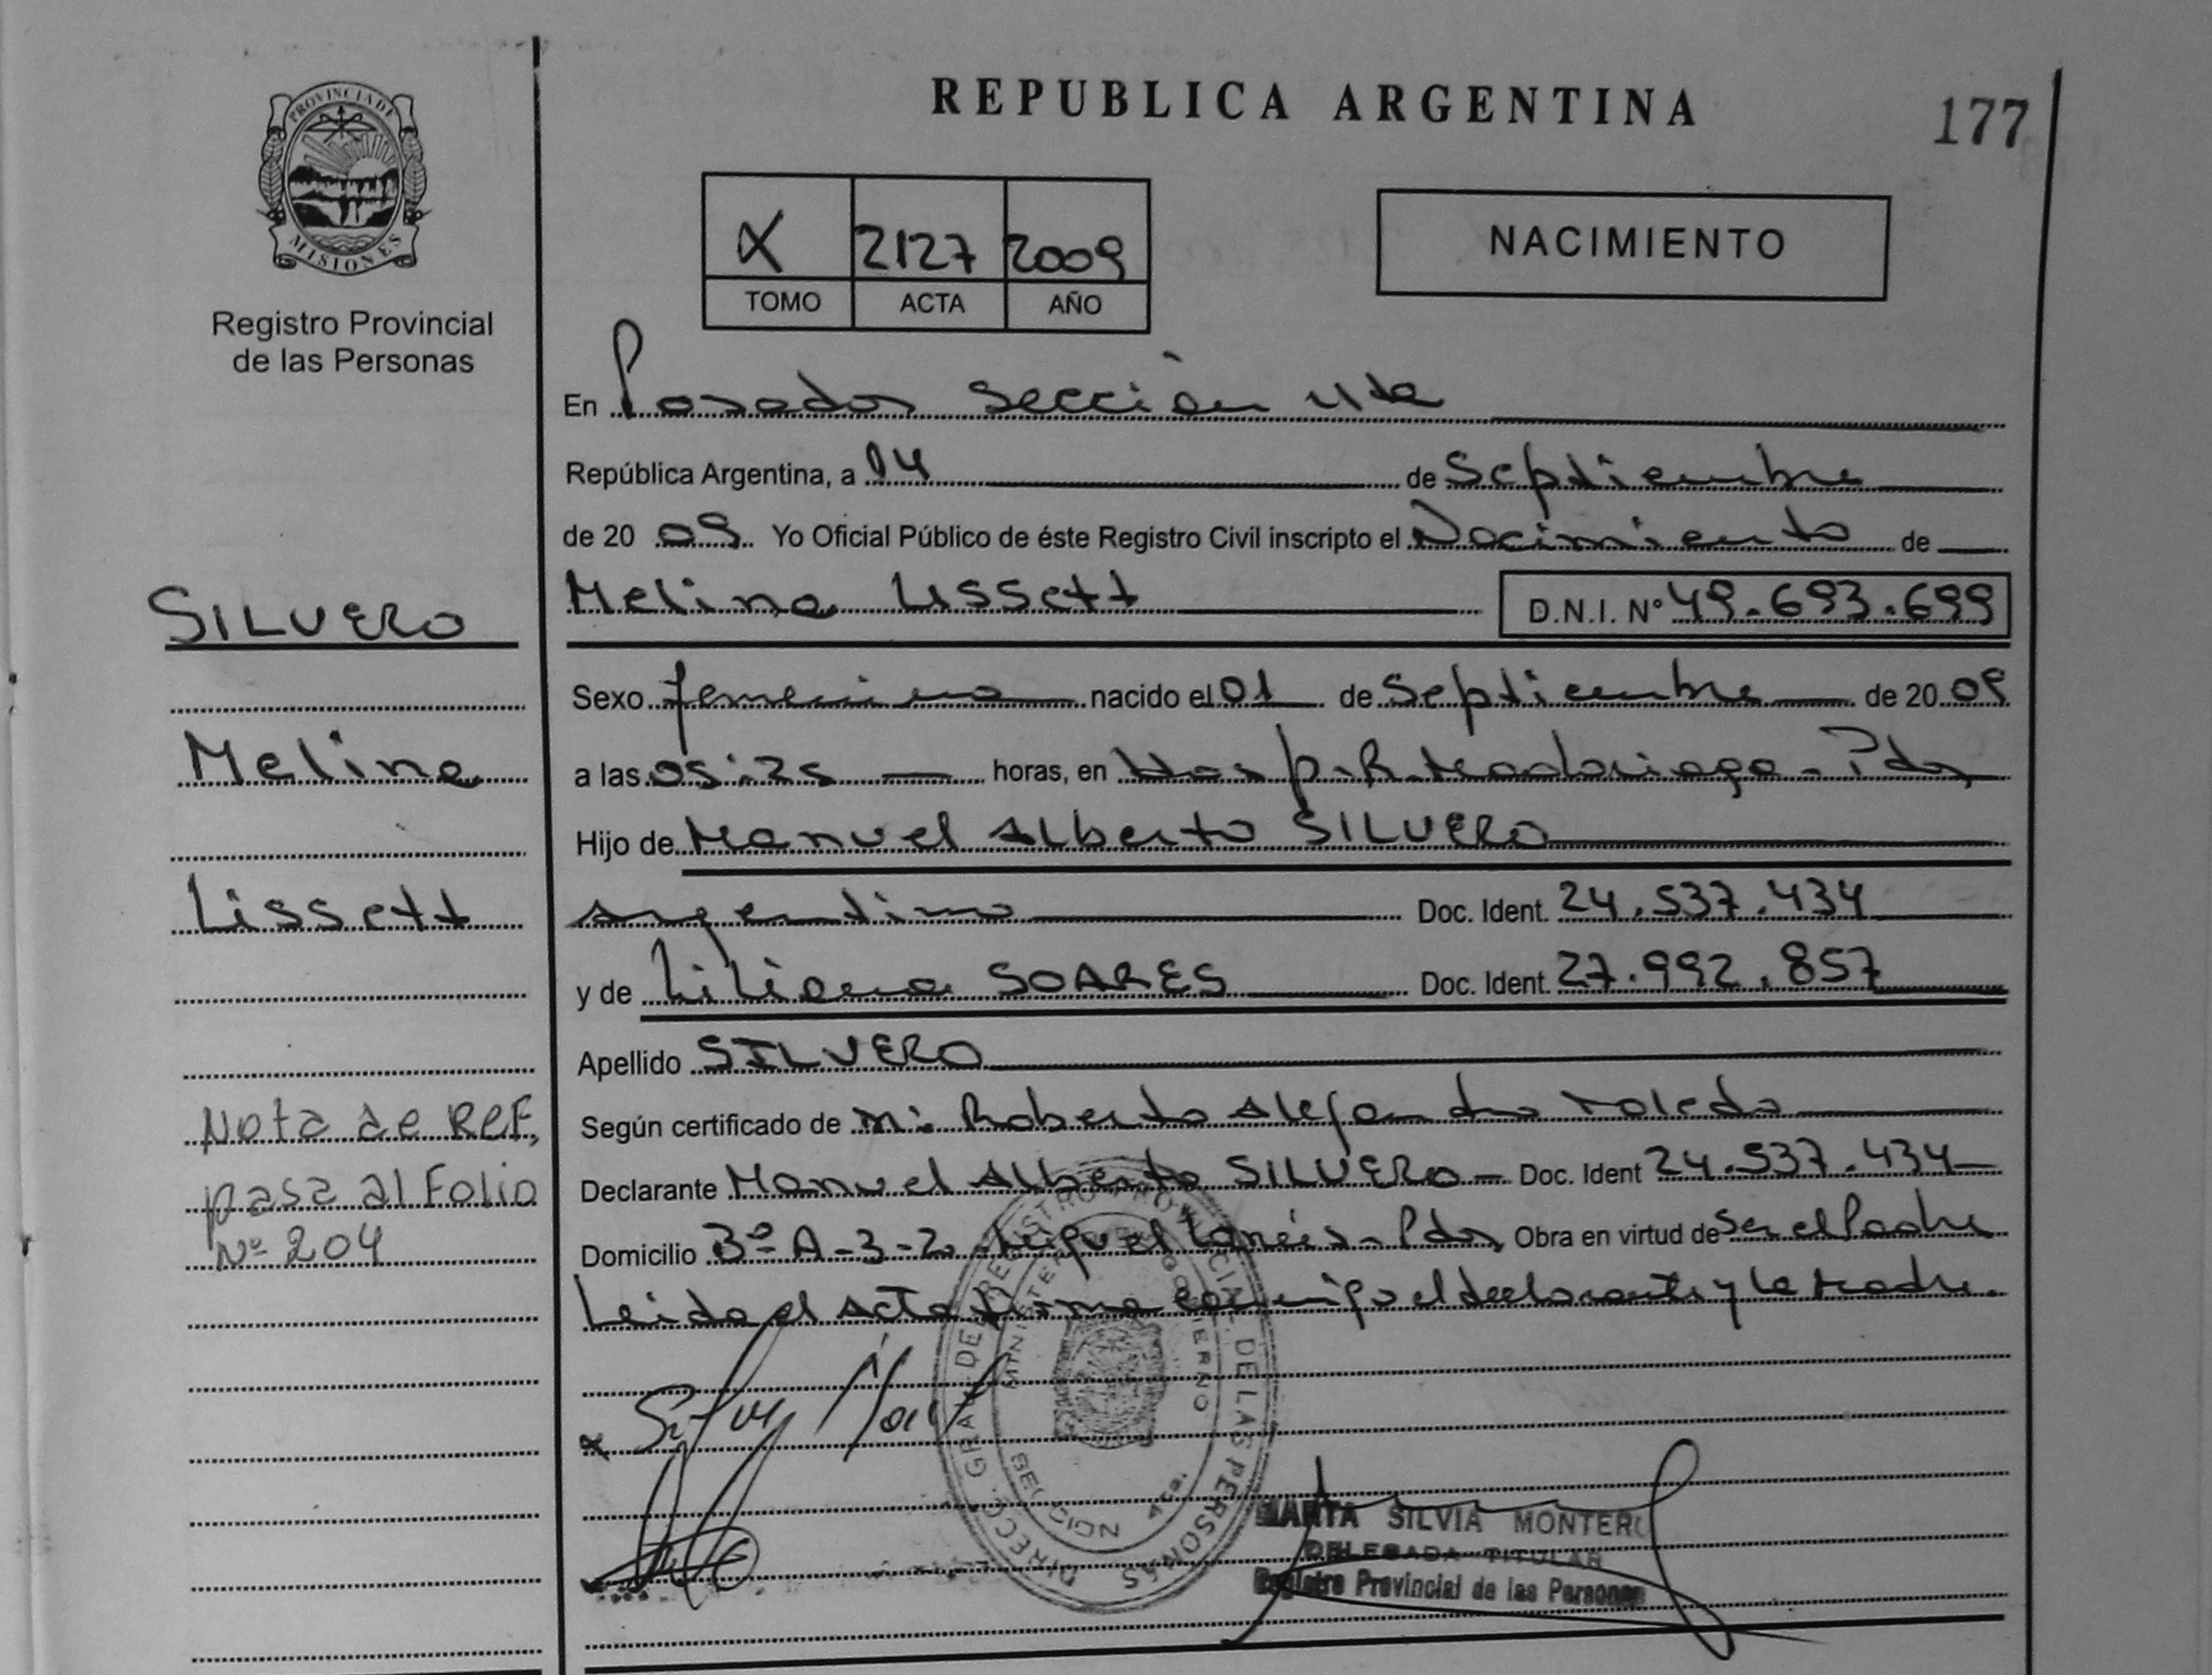 REPUBLICA ARGENTINA
177
PROVINCIA DE
MISIONES
Registro Provincial
de las Personas
2127 2009
TOMO ACTA AÑO
NACIMIENTO
En Posadas Sección 4ta
República Argentina, a 14 de Septiembre
de 20 09 Yo Oficial Público de éste Registro Civil inscripto el Nacimiento de
SILVERO
Melina Lissett D.N.I. N° 49.693.699
Sexo femenino nacido el 01 de Septiembre de 20 09
Melina
a las 05:25 horas, en Hosp. R. Madariaga - Pdas
Hijo de Manuel Alberto SILVERO
Lissett
Argentino Doc. Ident. 24.537.434
y de Liliana SOARES Doc. Ident. 27.992.857
Apellido SILVERO
Nota de REF,
pasa al Folio
Nº 204
Según certificado de Roberto Alejandro Toledo
Declarante Manuel Alberto SILVERO - Doc. Ident 24.537.434
Domicilio Bº A-3-2 Miguel Lanús - Pdas Obra en virtud de Ser el Padre
Leida el Acta firma conmigo el declarante y la Madre.
DIRECC. GRAL. DE REGISTRO PROVINCIAL DE LAS PERSONAS
MINISTERIO GOBIERNO
SECCION 4ta.
MARTA SILVIA MONTERO
DELEGADA TITULAR
Registro Provincial de las Personas